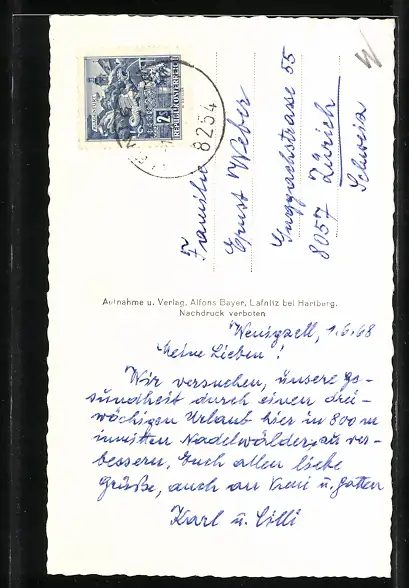 REPUBLIK ÖSTERREICH
2
8254
Familie
Ernst Weber
Guggachstrasse 55
8057 Zürich
Schweiz
Aufnahme u. Verlag, Alfons Bayer, Lafnitz bei Hartberg.
Nachdruck verboten
Wenigzell, 1.6.68
Meine Lieben!
Wir versuchen, unsere Ge-
sundheit durch einen drei-
wöchigen Urlaub hier in 800 m
inmitten Nadelwälder, zu ver-
bessern. Euch allen liebe
Grüße, auch an Vreni u. Gatten
Karl u. Cilli